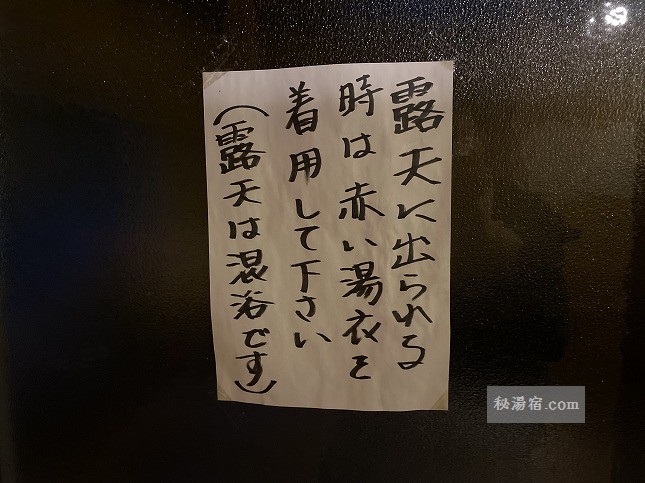 露天に出られる
時は赤い湯衣を
着用して下さい
（露天は混浴です）
秘湯宿.com